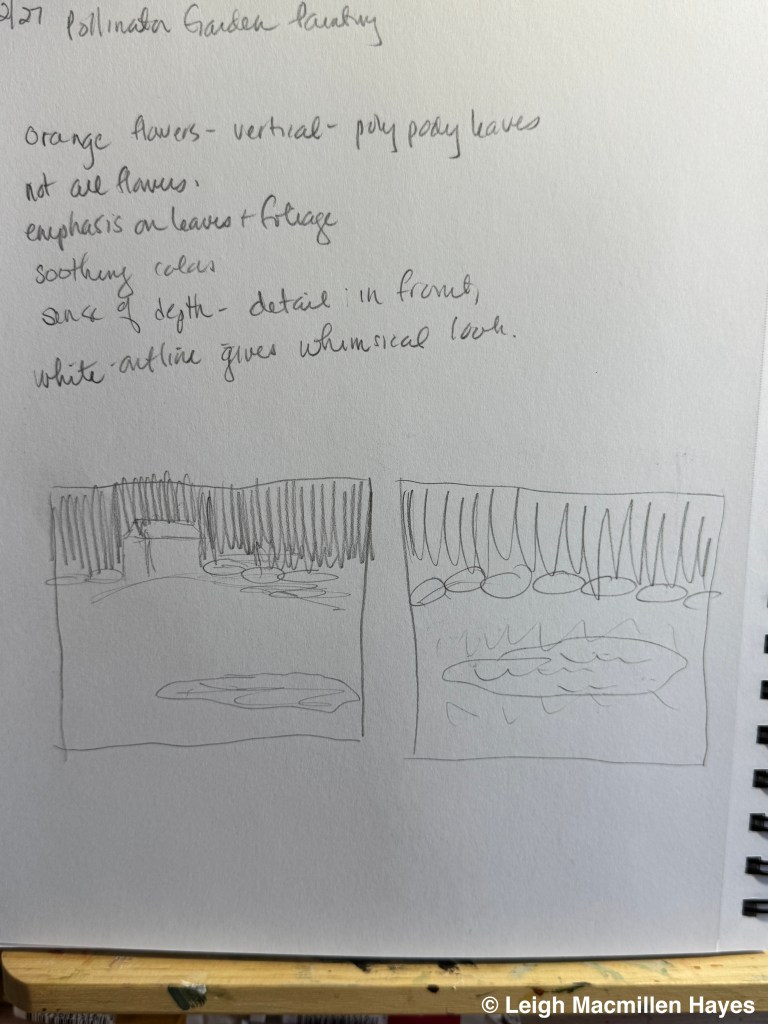 2/27 Pollinator Garden Painting
orange flowers - vertical - poly pody leaves
not all flowers.
emphasis on leaves + foliage
soothing colors
sense of depth - detail in front,
white-outline gives whimsical look.
© Leigh Macmillen Hayes